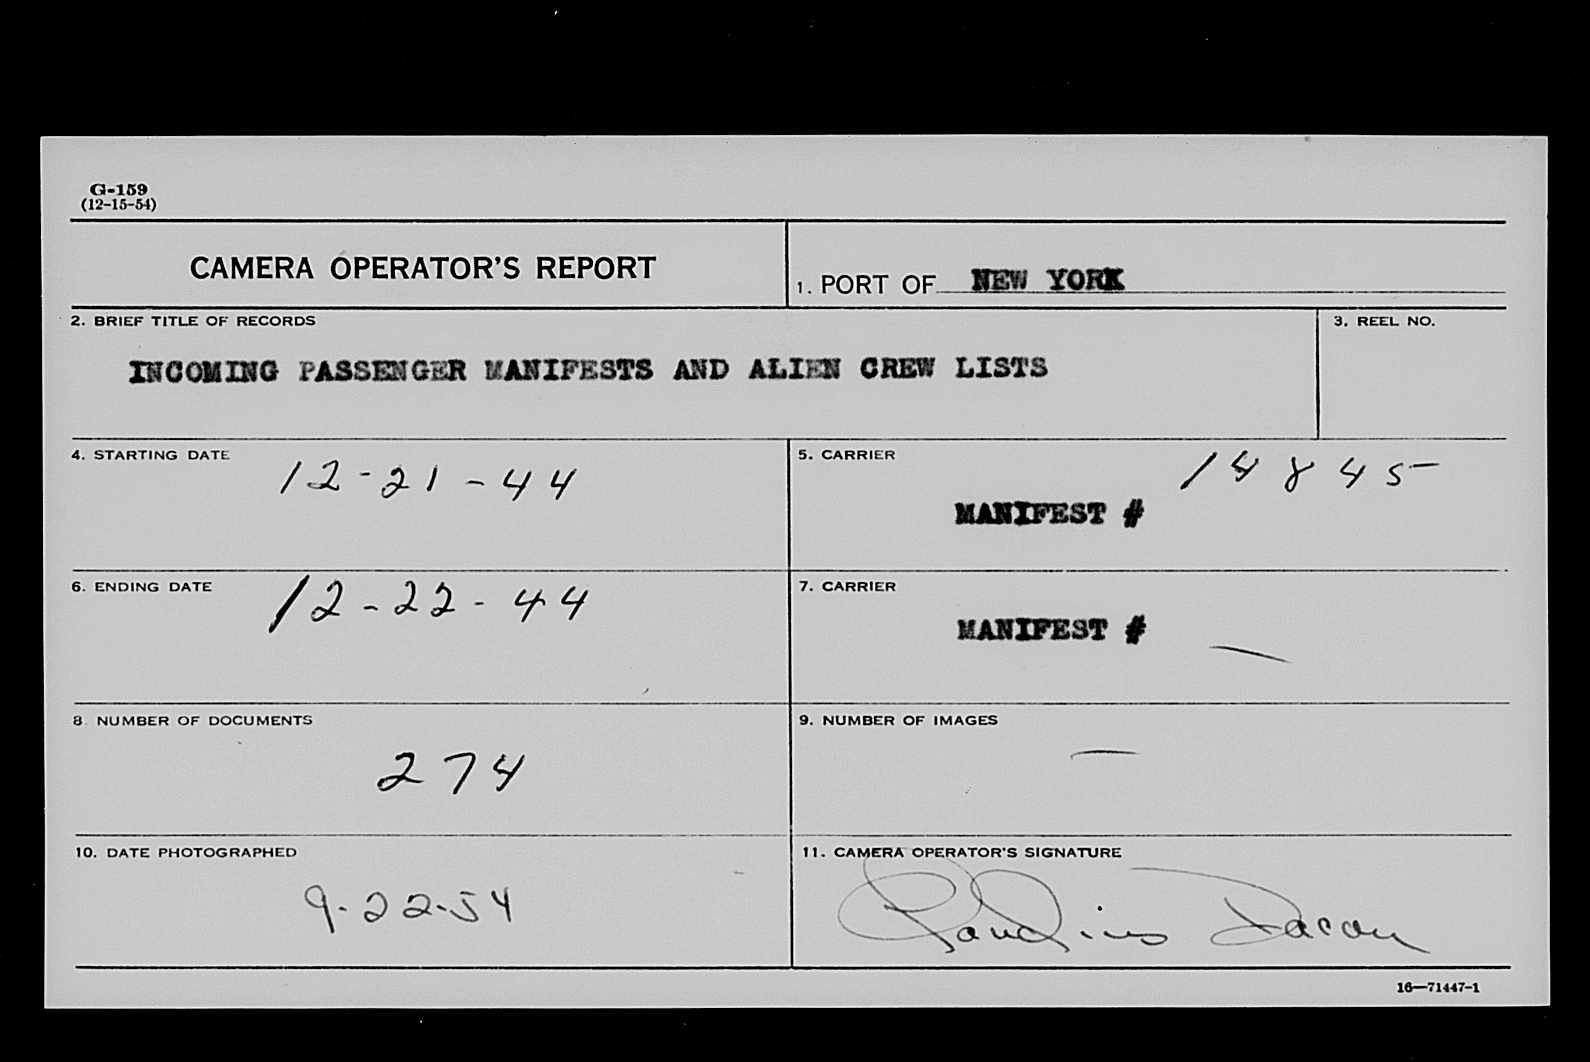 G-159
(12-15-54)
CAMERA OPERATOR'S REPORT
1. PORT OF NEW YORK
2. BRIEF TITLE OF RECORDS
3. REEL NO.
INCOMING PASSENGER MANIFESTS AND ALIEN CREW LISTS
4. STARTING DATE
12-21-44
5. CARRIER
14845
MANIFEST #
6. ENDING DATE
12-22-44
7. CARRIER
MANIFEST # —
8. NUMBER OF DOCUMENTS
274
9. NUMBER OF IMAGES
—
10. DATE PHOTOGRAPHED
9-22-54
11. CAMERA OPERATOR'S SIGNATURE
16—71447-1